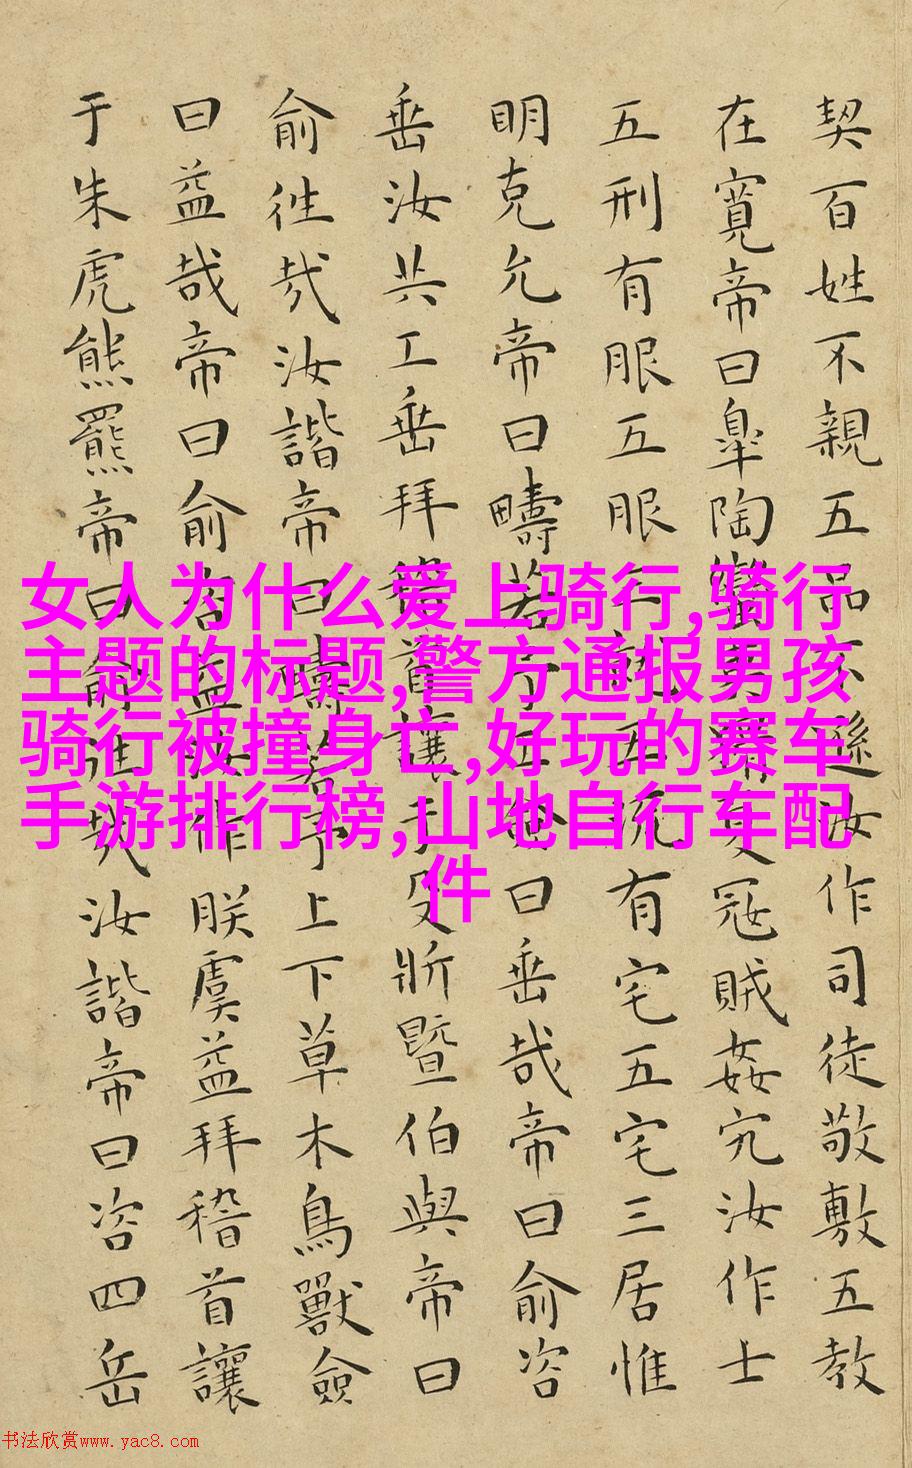 契百姓不親五品不遜汝作司徒敬敷五教
在寬帝曰皐陶蠻夷猾夏寇賊姦宄汝作士
五刑有服五服三就五流有宅五宅三居惟
明克允帝曰疇若予工僉曰垂哉帝曰俞咨
垂汝共工垂拜稽首讓于殳斨暨伯與帝曰
俞往哉汝諧帝曰疇若予上下草木鳥獸僉
曰益哉帝曰俞咨益汝作朕虞益拜稽首讓
于朱虎熊羆帝曰俞往哉汝諧帝曰咨四岳
女人为什么爱上骑行,骑行
主题的标题,警方通报男孩
骑行被撞身亡,好玩的赛车
手游排行榜,山地自行车配
件
书法欣赏www.yac8.com